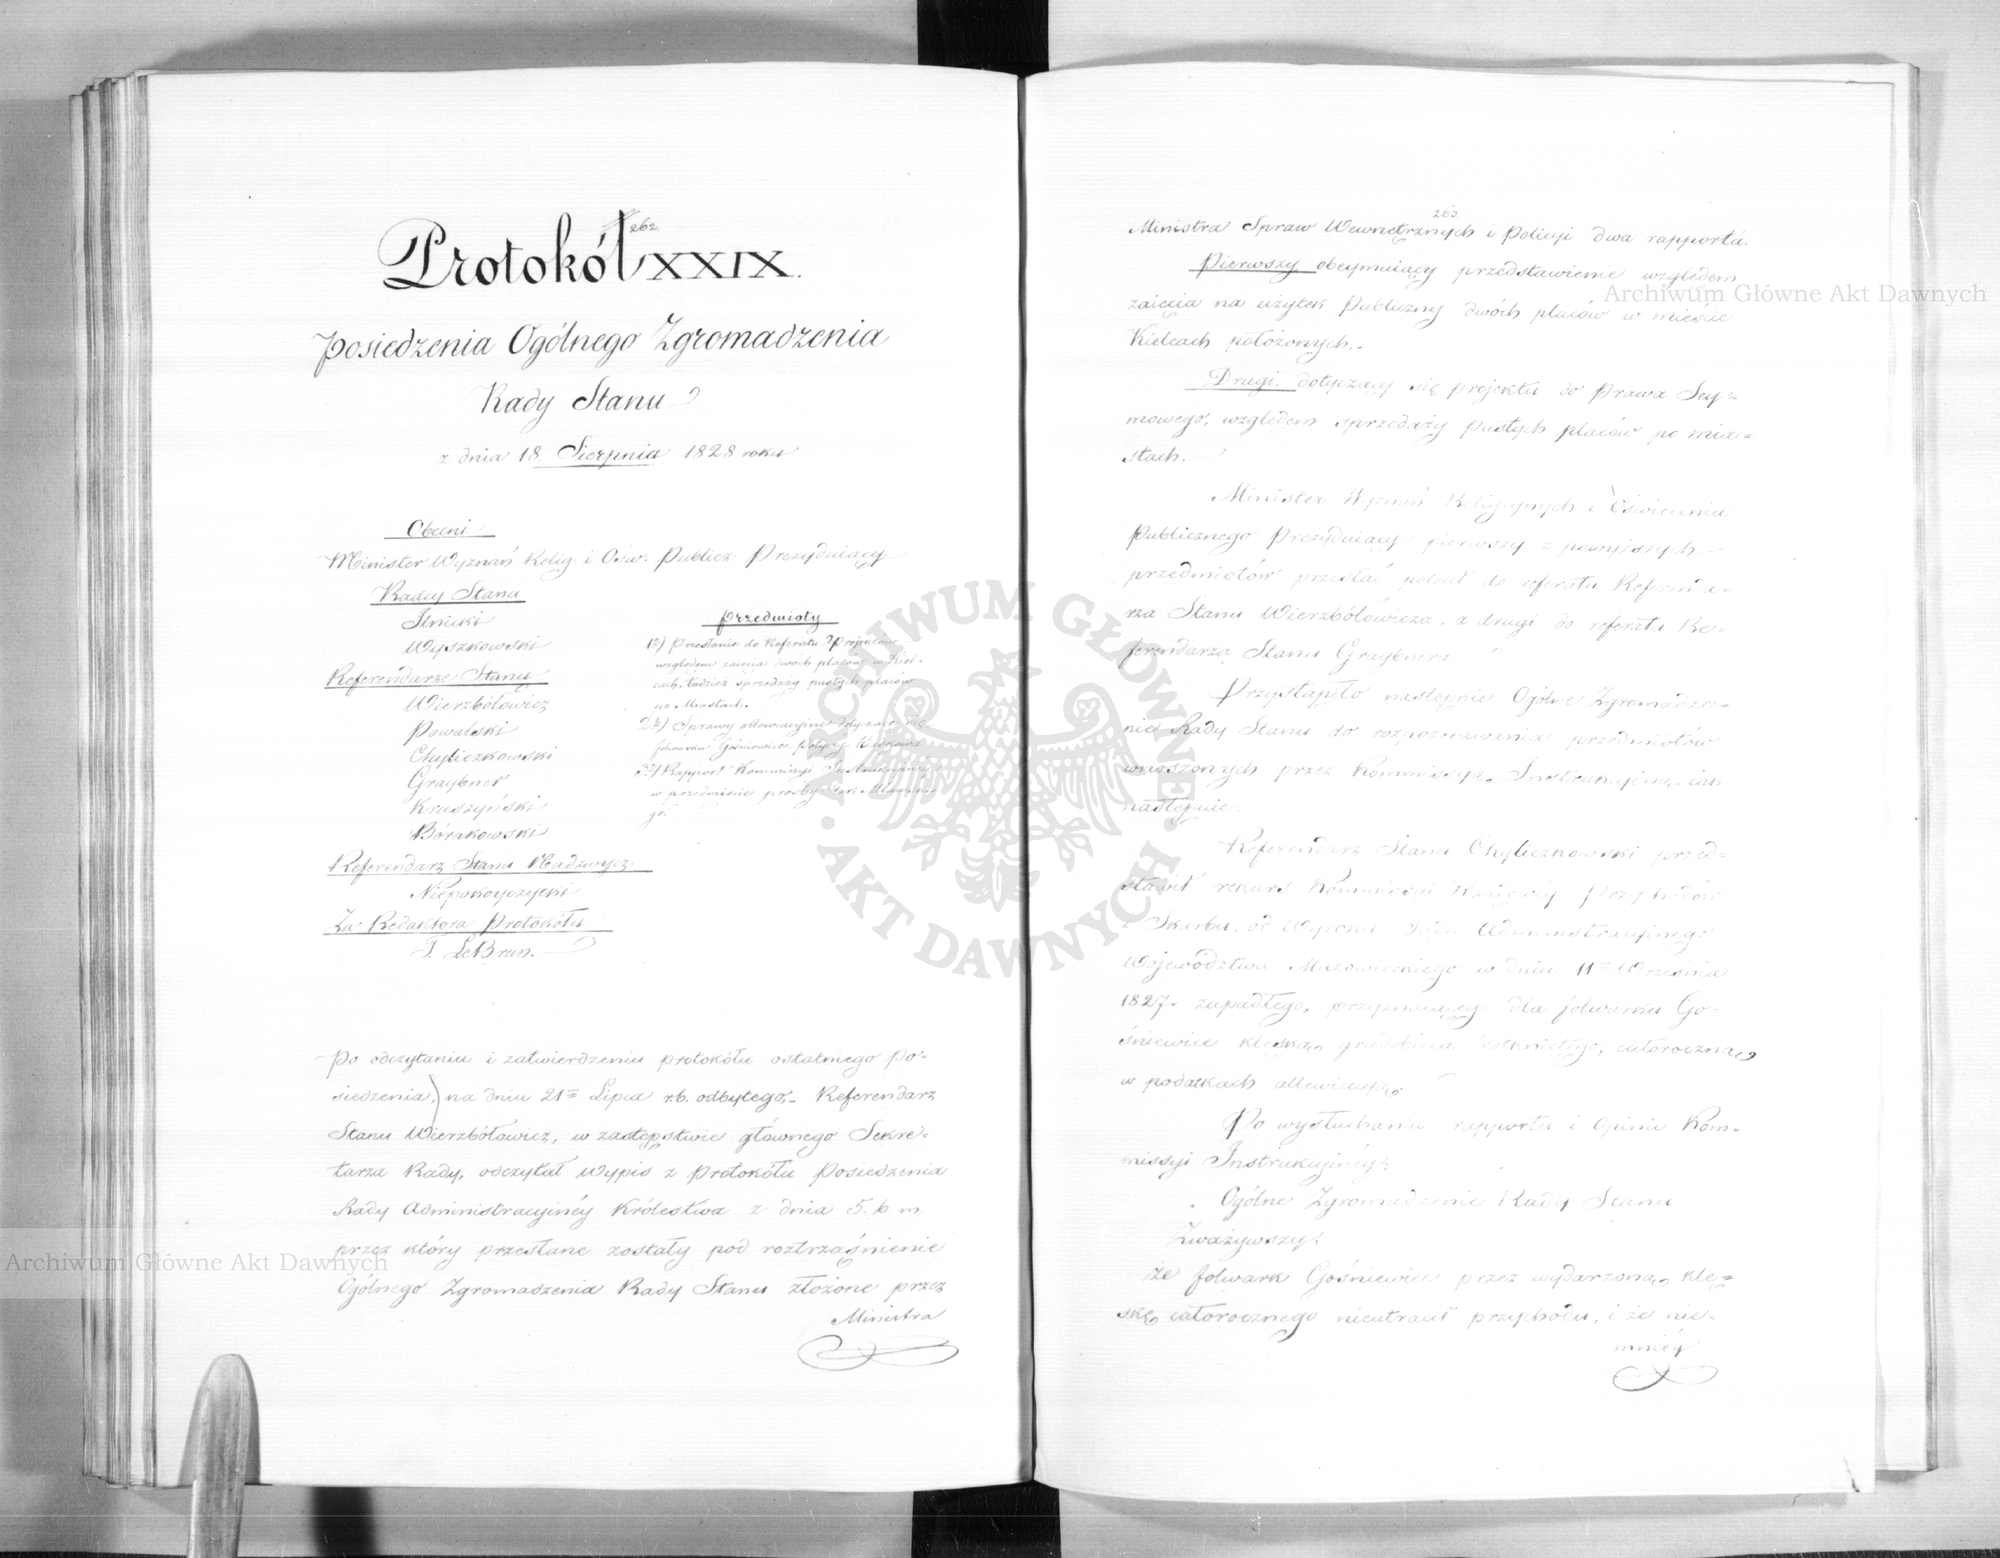 262.
Protokół XXIX.
Posiedzenia Ogólnego Zgromadzenia
Rady Stanu
z dnia 18. Sierpnia 1828 roku
Obecni
Minister Wyznań Relig. i Ośw. Publicz. Prezyduiący
Radcy Stanu
Wyszkowski
Referendarze Stanu
Wierzbółowicz
Powalski
Chyliczkowski
Graybner
Kruszyński
Referendarz Stanu Nadzwycz.
Niepokoyczycki
Za Redaktora Protokółu
T. LeBrun.
Przedmioty
1º) Przesłanie do Referatu Projektów
względem zaięcia dwóch placów w Kiel-
cach, tudzież sprzedaży pustych placów
po Miastach.
2º) Sprawy allewiacyine dotyczące się
folwarku Gośniewice
3º) Rapport Kommissyi Instrukcyiney
w przedmiocie prośby
go.
Po odczytaniu i zatwierdzeniu protokółu ostatniego Po-
siedzenia, na dniu 21m Lipca r.b. odbytego,- Referendarz
Stanu Wierzbółowicz, w zastępstwie głównego Sekre-
tarza Rady, odczytał wypis z Protokółu Posiedzenia
Rady Administracyinéy Królestwa z dnia 5. b. m
przez który przesłane zostały pod roztrząśnienie
Ogólnego Zgromadzenia Rady Stanu złożone przez
Ministra
263.
Ministra Spraw Wewnętrznych i Policyi dwa rapporta.
Pierwszy obeymuiący przedstawienie względem
zaięcia na użytek Publiczny dwóch placów w mieście
Kielcach położonych.-
Drugi. dotyczący się projektu do Prawa Sey-
mowego, względem sprzedaży pustych placów po mia-
stach.
Minister Wyznań Religiynych i Oświecenia
Publicznego Prezyduiący pierwszy z powyższych
przedmiotów przesłać polecił do referatu Referenda-
rza Stanu Wierzbółowicza, a drugi do referatu Re-
ferendarza Stanu Graybnera.
Przystąpiło następnie Ogólne Zgromadze-
nie Rady Stanu do rozpoznawania przedmiotów
wnoszonych przez Kommissyą Instrukcyiną, iak
następuie.
Referendarz Stanu Chyliczkowski przed-
stawił rekurs Kommissyi Rządowéy Przychodów
i Skarbu, od Wyroku Sądu Administracyinego
Województwa Mazowieckiego w dniu 11m Września
1827r. zapadłego, przyznaiący dla folwarku Go-
śniewice klęską gradobicia dotkniętego, całoroczną
w podatkach allewiacyą.
Po wysłuchaniu rapportu i Opinii Kom-
missyi Instrukcyinéy,
Ogólne Zgromadzenie Rady Stanu
Zważywszy.
że folwark Gośniewice przez wydarzoną klę-
skę całorocznego nieutracił przychodu, i że nie-
mniéy
Archiwum Główne Akt Dawnych
Archiwum Główne Akt Dawnych
ARCHIWUM GŁÓWNE • AKT DAWNYCH •